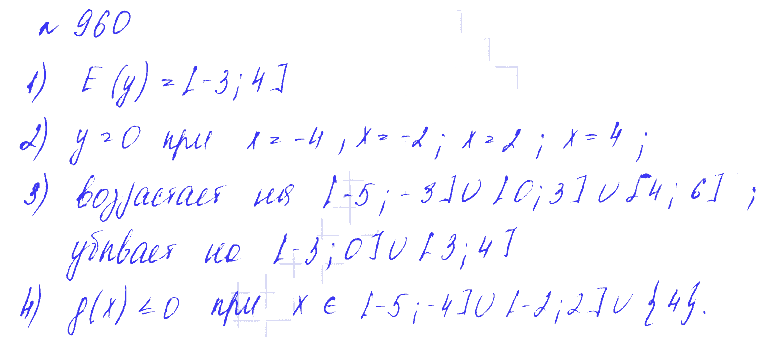 № 960
1) E(y) = [-3; 4]
2) y = 0 при x = -4, x = -2; x = 2; x = 4;
3) возрастает на [-5; -3] ∪ [0; 3] ∪ [4; 6];
убывает на [-3; 0] ∪ [3; 4]
4) f(x) ≤ 0 при x ∈ [-5; -4] ∪ [-2; 2] ∪ {4}.